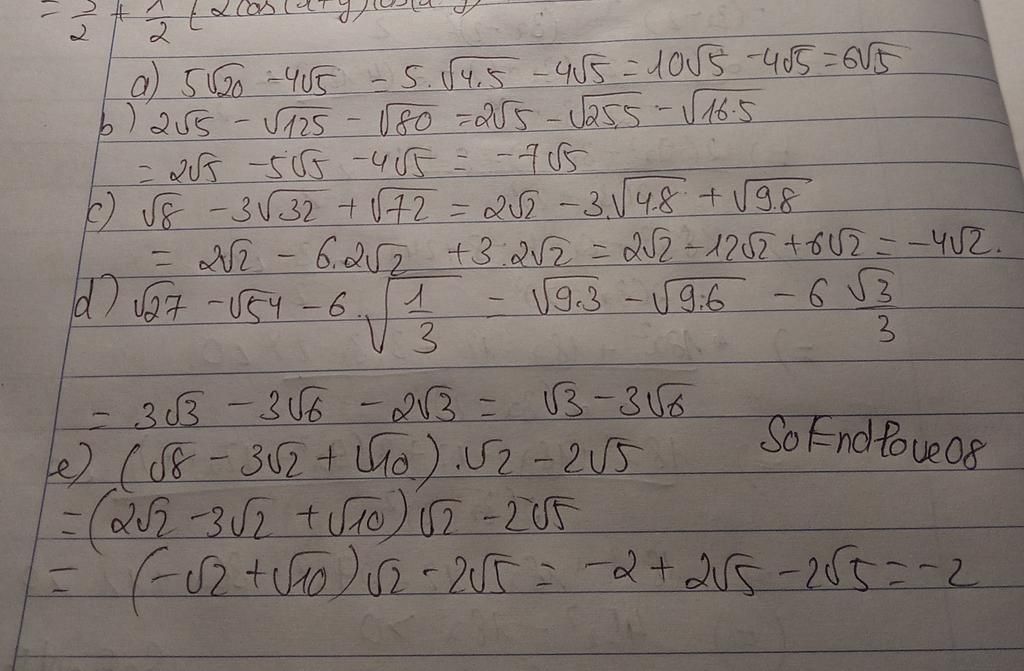 = 3/2 + 1/2 (2cos(x+y)cos(x-y)
a) 5√20 - 4√5 = 5.√4.5 - 4√5 = 10√5 - 4√5 = 6√5
b) 2√5 - √125 - √80 = 2√5 - √25.5 - √16.5
= 2√5 - 5√5 - 4√5 = -7√5
c) √8 - 3√32 + √72 = 2√2 - 3.√4.8 + √9.8
= 2√2 - 6.2√2 + 3.2√2 = 2√2 - 12√2 + 6√2 = -4√2.
d) √27 - √54 - 6.√(1/3) = √9.3 - √9.6 - 6 √3/3
= 3√3 - 3√6 - 2√3 = √3 - 3√6
e) (√8 - 3√2 + √10).√2 - 2√5
SoEndLove08
= (2√2 - 3√2 + √10)√2 - 2√5
= (-√2 + √10)√2 - 2√5 = -2 + 2√5 - 2√5 = -2